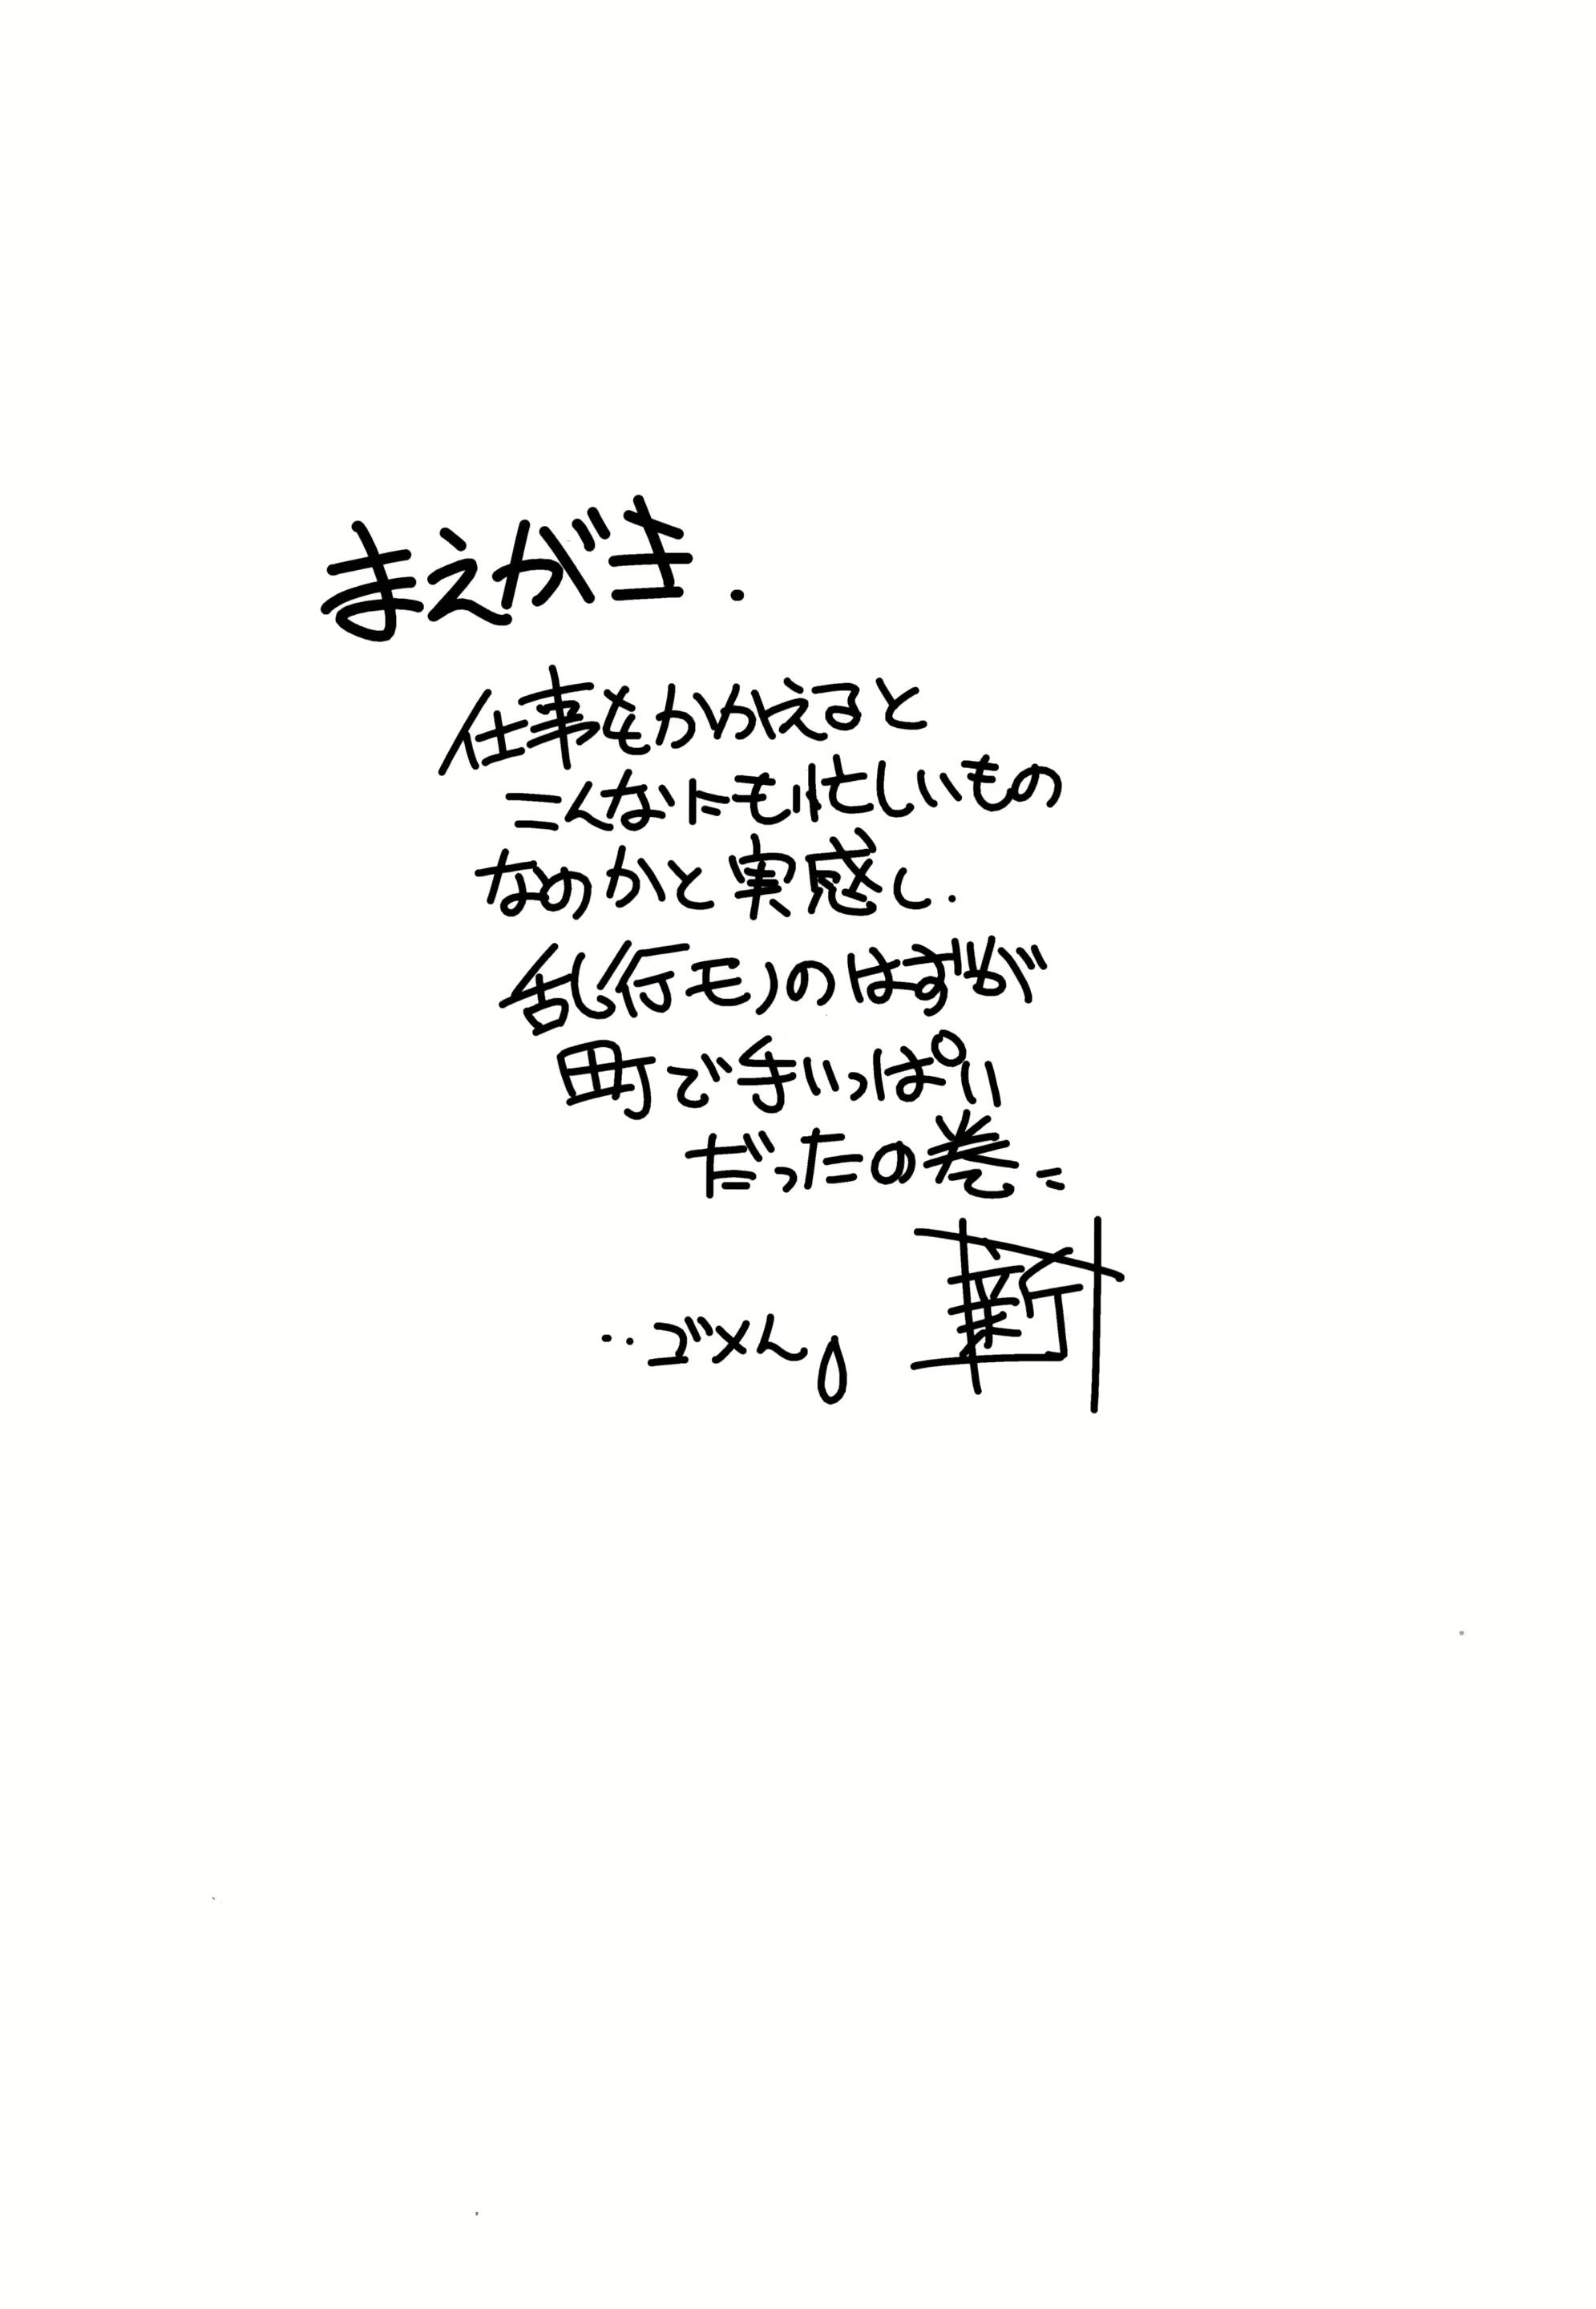 まえがき.
仕事をかかえると
こんなにも忙しいもの
なのかと実感し.
乱行モノのはずが
町で手いっぱい
だったの巻..
..ごめん